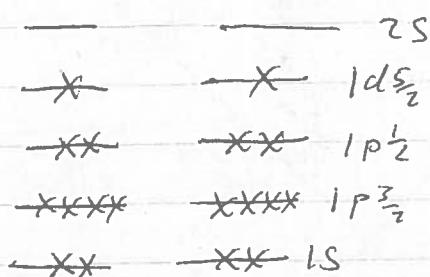 2S
X X 1d 5/2
XX XX 1p 1/2
XXXX XXXX 1p 3/2
XX XX 1S